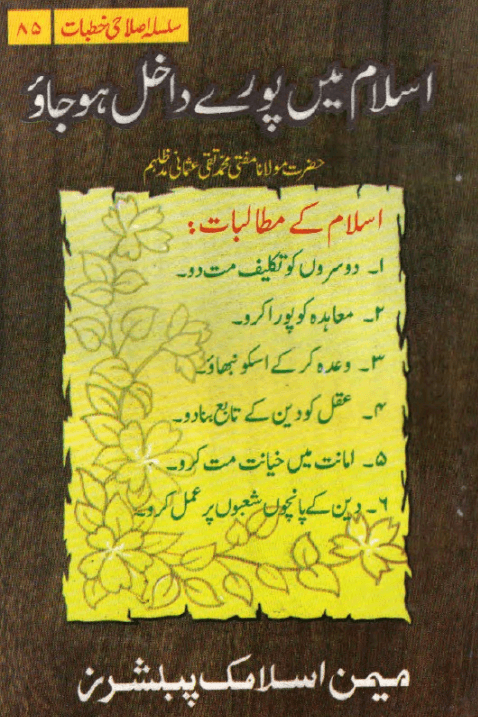 سلسلہ اصلاحی خطبات ۸۵
اسلام میں پورے داخل ہو جاؤ
حضرت مولانا مفتی محمد تقی عثمانی مدظلہم
اسلام کے مطالبات :
۱۔ دوسروں کو تکلیف مت دو۔
۲۔ معاہدہ کو پورا کرو۔
۳۔ وعدہ کر کے اسکو نبھاؤ۔
۴۔ عقل کو دین کے تابع بنا دو۔
۵۔ امانت میں خیانت مت کرو۔
۶۔ دین کے پانچوں شعبوں پر عمل کرو۔
میمن اسلامک پبلشرز